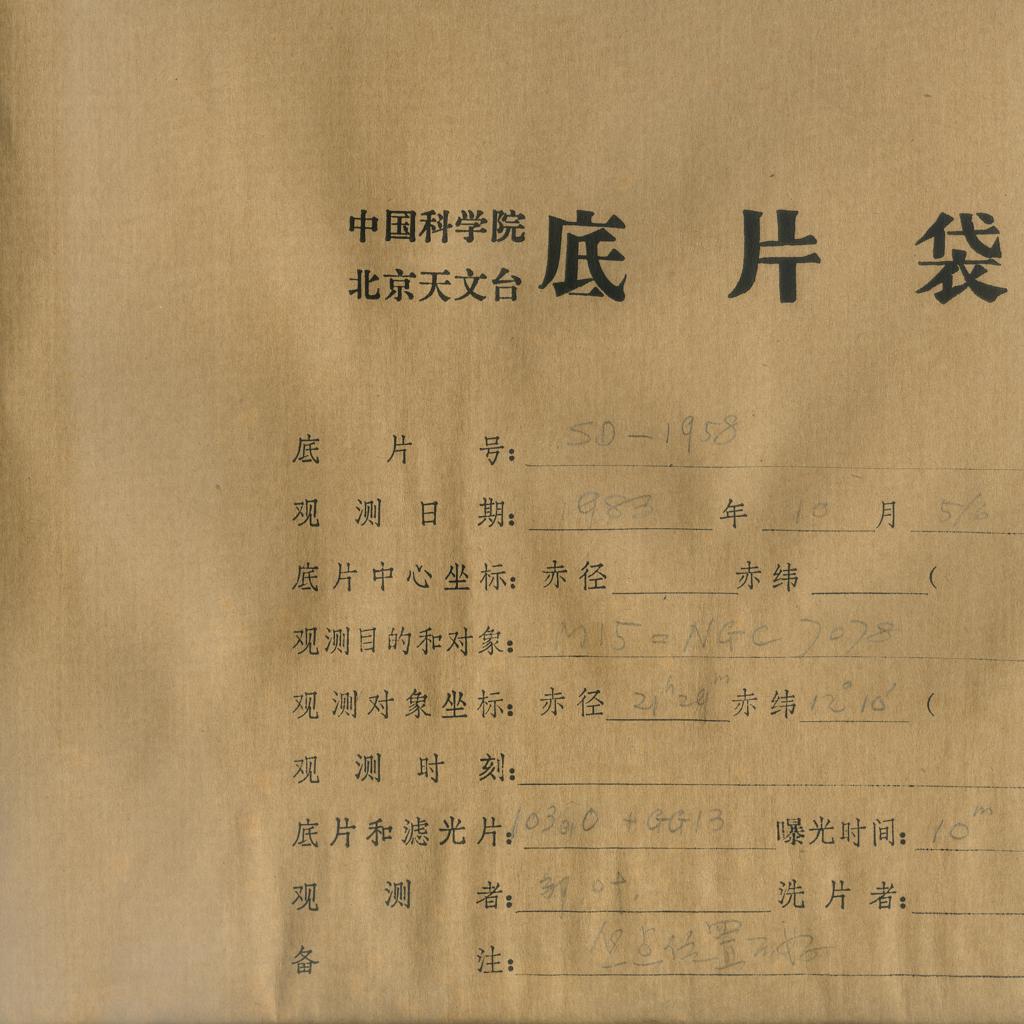 中国科学院
北京天文台
底片袋
底片号： SD-1958
观测日期： 1983 年 10 月 5/6
底片中心坐标： 赤径 赤纬 (
观测目的和对象： M15 = NGC 7078
观测对象坐标： 赤径 21h 29m 赤纬 12° 10′ (
观测时刻：
底片和滤光片： 103aO + GG13 曝光时间： 10m
观测者： 叶 洗片者：
备注： 位置不好